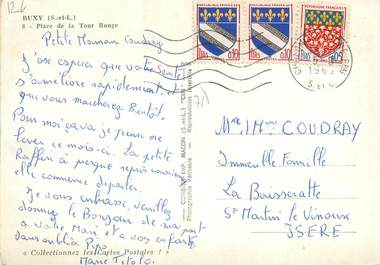 BUXY (S.-et-L.)
8 - Place de la Tour Rouge
Petite Maman Coudray
J'ose espérer que votre santé
s'améliore rapidement et
que vous marcherez Bientôt.
Pour moi ça va je pense me
lever ce mois-ci. La petite
à presque
elle commence à parler.
Je vous embrasse, veuillez
donner le Bonjour de ma part
a votre Mari et a vos enfants
sans oublier
Marie
« Collectionnez les Cartes Postales ! »
COMBIER IMP. MACON (S.-et-L.) "CIM"
Photographie Véritable - Reproduction Interdite
REPUBLIQUE FRANÇAISE
0,10
0,10
0,05
196
S. ET L.
COUDRAY
Immeuble Famille
La Buisseratte
St Martin le Vinoux
ISERE